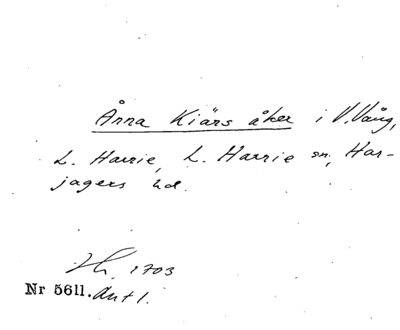 Änna Kiärs åker i V. Vång,
L. Harrie, L. Harrie sn, Har-
jagers hd.
1703
Nr 5611. Ant 1.